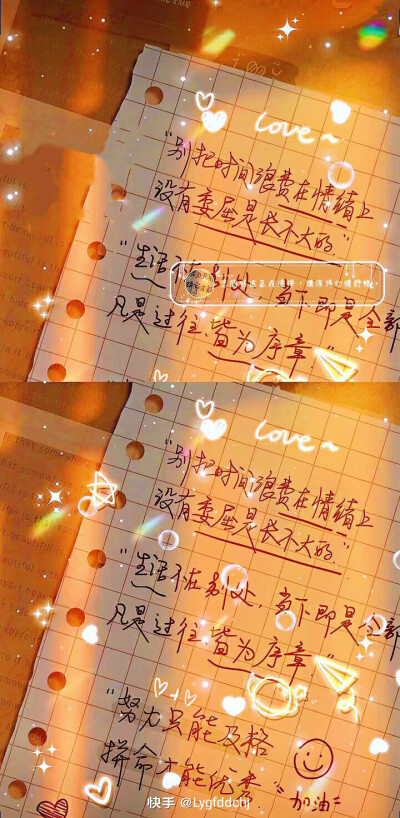 love~
"别把时间浪费在情绪上
没有委屈是长不大的"
"生活
当下即是全部
凡是过往，皆为序章."
love~
"别把时间浪费在情绪上
没有委屈是长不大的"
"生活不在别处，当下即是全部
凡是过往，皆为序章."
"努力只能及格
拼命才能优秀"
加油=
快手 @Lygfddchj